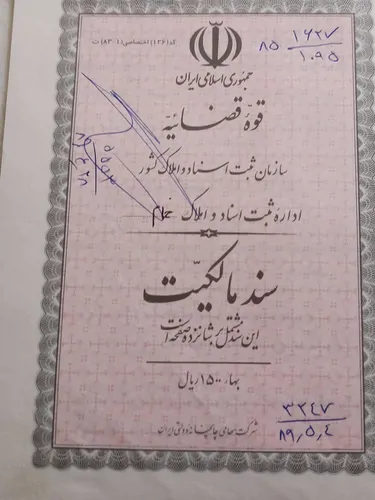 کد (۱۳۶) اختصاصی (۸۳۰۱) ت
۸۵ ۱۶۲۷
۱۰۹۵
جمهوری اسلامی ایران
قوّهٔ قضائیّه
سازمان ثبت اسناد و املاک کشور
ادارهٔ ثبت اسناد و املاک
سند مالکیّت
این سند مشتمل بر شانزده صفحه است
بها: ۱۵۰۰ ریال
۳۲۴۷
۸۹٫۵٫۴
شرکت سهامی چاپخانه دولتی ایران